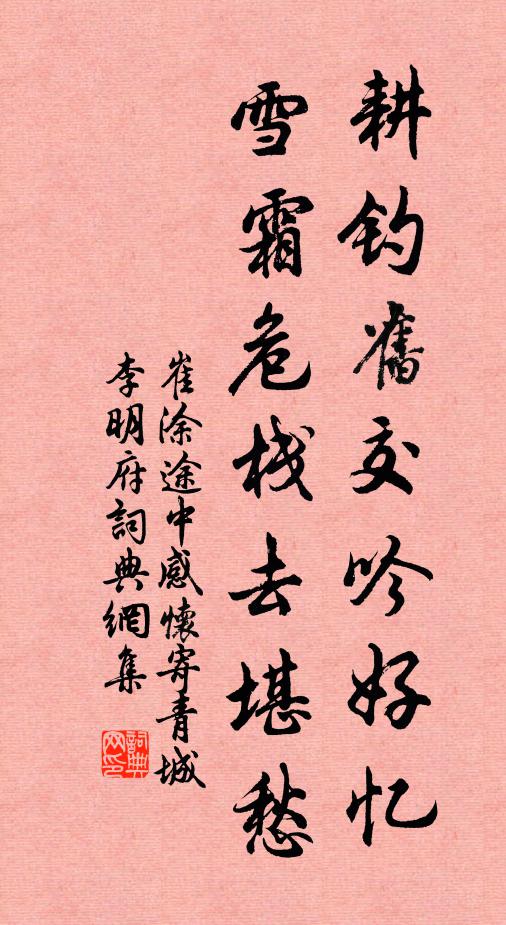 耕钓舊交吟好忆
雪霜危栈去堪愁
崔涂途中感懷寄青城
李明府詞典網集
詞典
网印